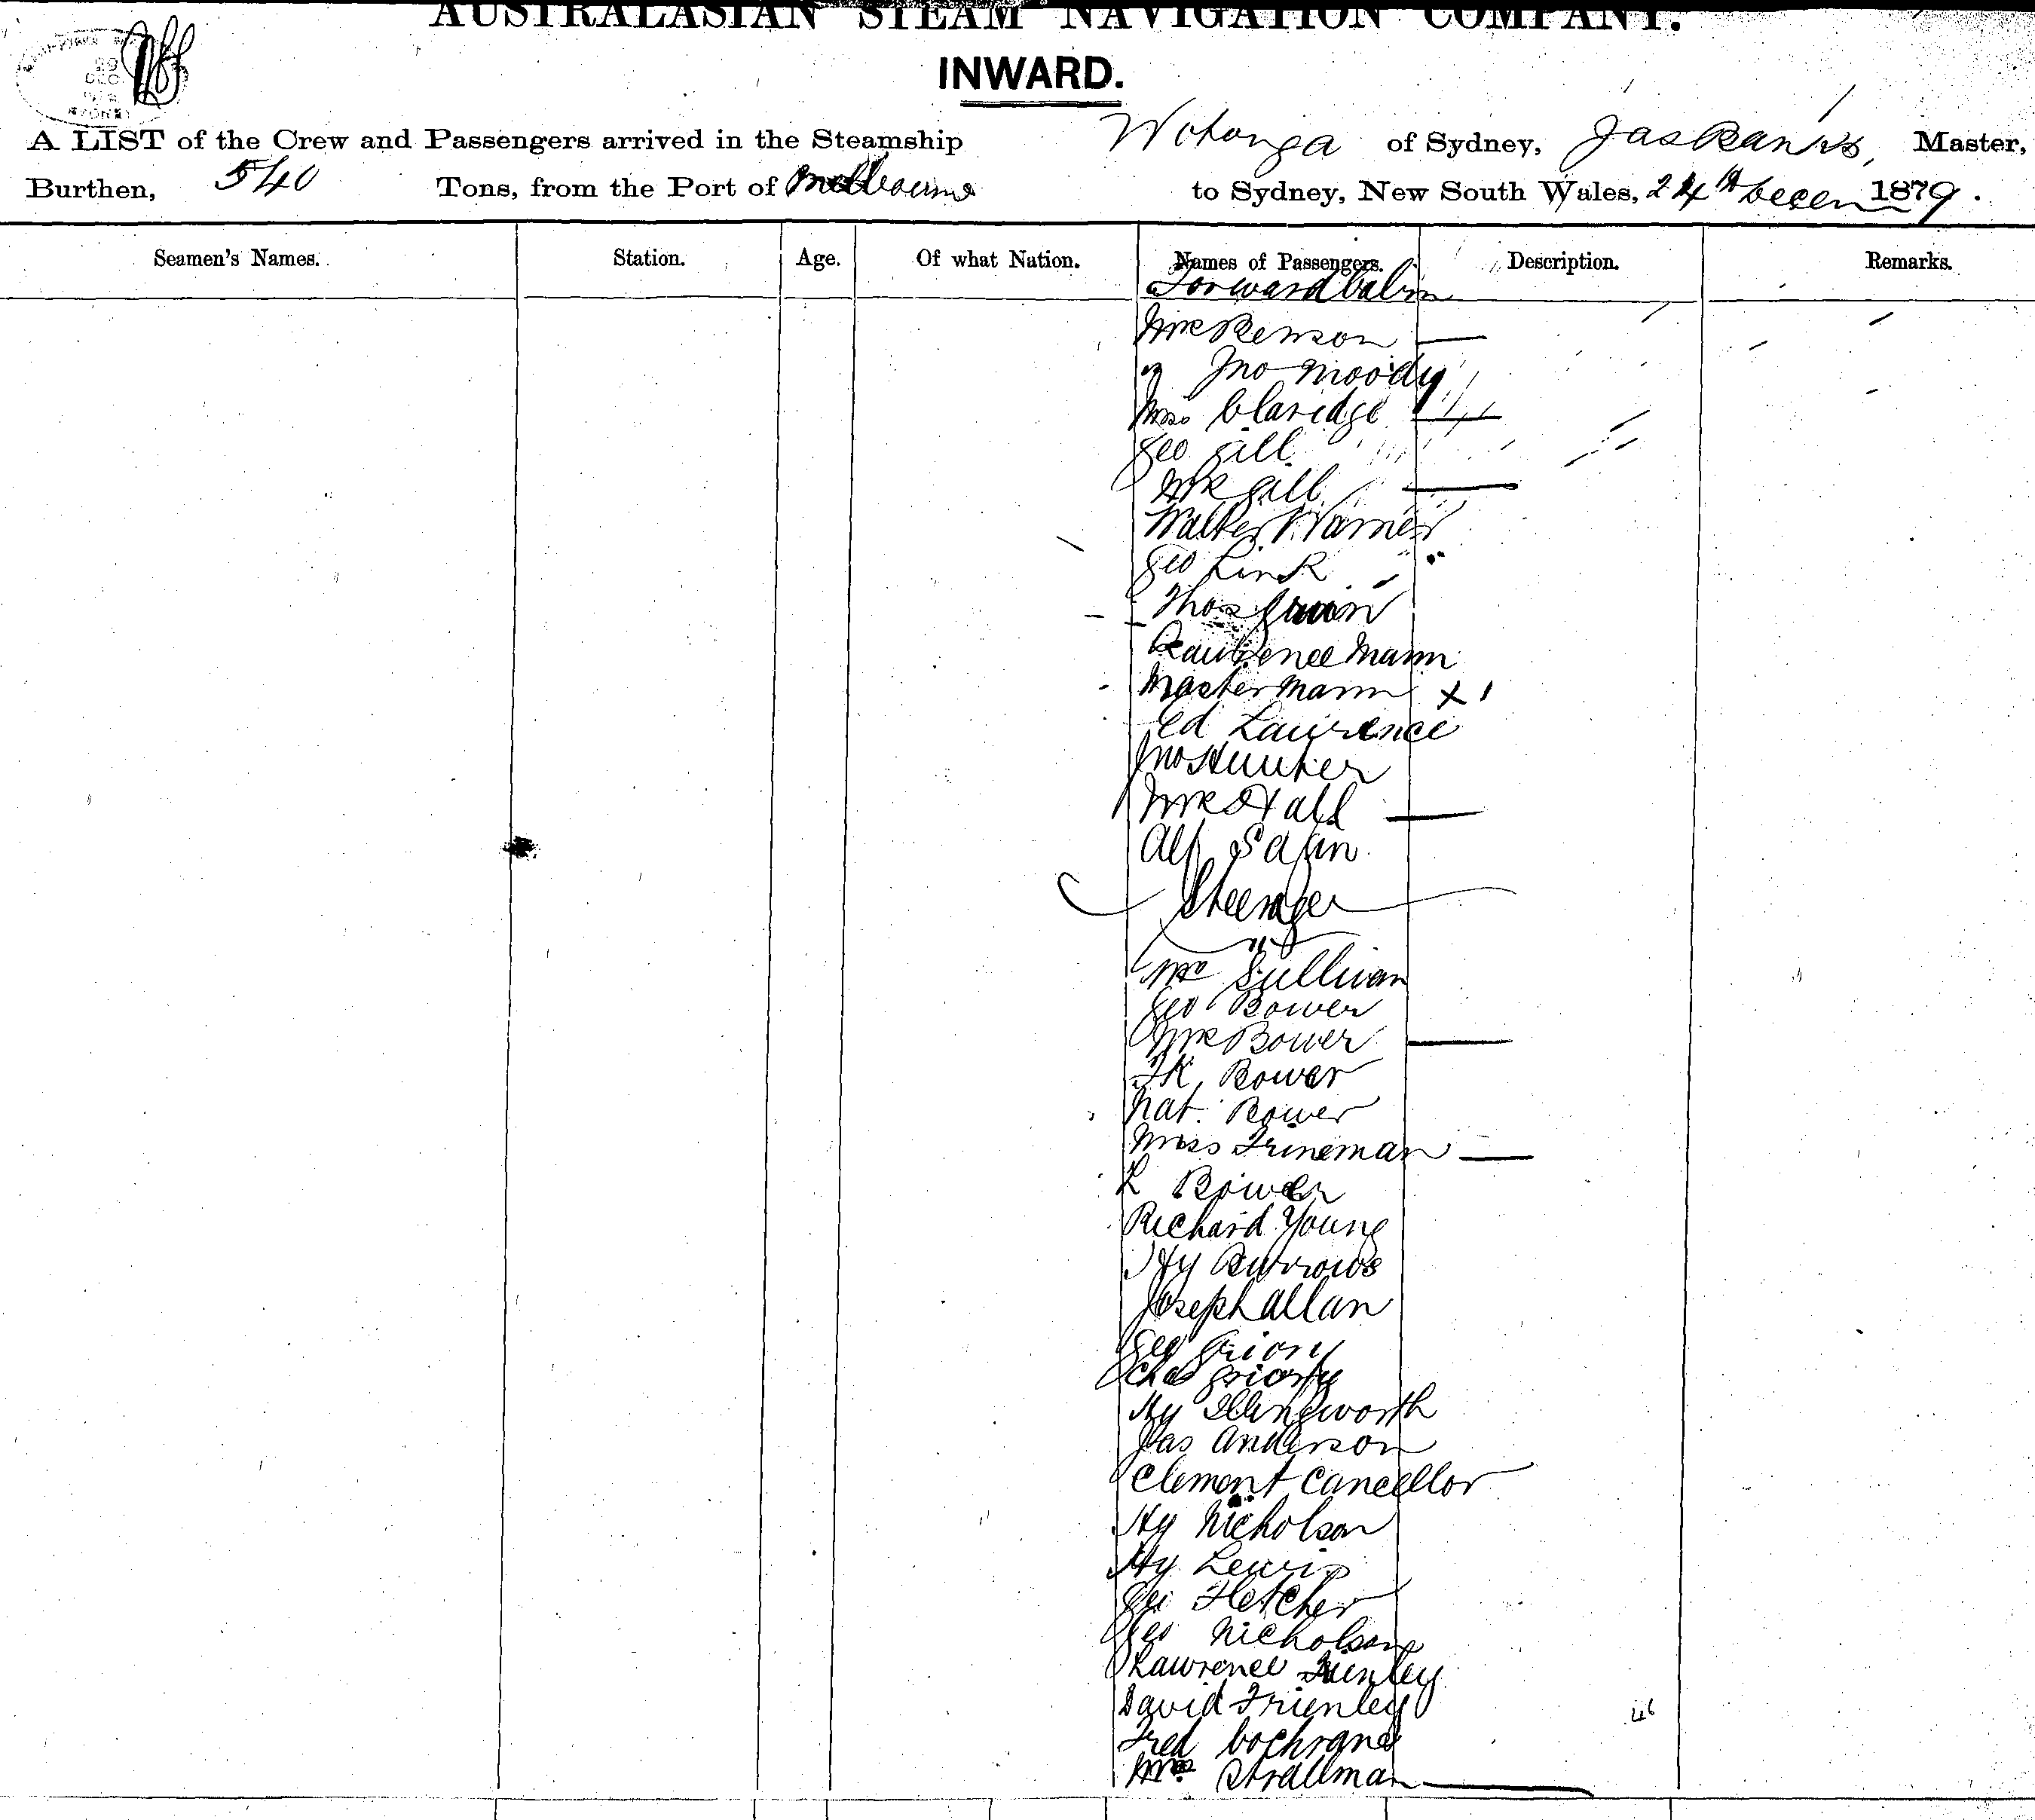 AUSTRALASIAN STEAM NAVIGATION COMPANY.
INWARD.
29
DEC
SYDNEY
A LIST of the Crew and Passengers arrived in the Steamship Wotonga of Sydney, Jas Banks, Master,
Burthen, 540 Tons, from the Port of Melbourne to Sydney, New South Wales, 24th Decem 1879.
Seamen's Names. Station. Age. Of what Nation. Names of Passengers. Description. Remarks.
Forward Cabin
Benson
Jno Moody
Claridge
Geo Gill
Gill
Walter Warner
Geo Link
Thos
Lawrence Mann
Master Mann x 1
Ed Lawrence
Jno Hunter
Hall
Alf
Steerage
Sullivan
Geo Bower
Bower
Fk Bower
Nat. Bower
Miss Frineman
L Bower
Richard Young
Hy Burrows
Joseph Allan
Geo
Chas
Hy Illingworth
Jas Anderson
Clement Cancellor
Hy Nicholson
Hy Lewis
Geo Fletcher
Geo Nicholson
Lawrence
David Frienley
Fred Cochrane
46
Mrs Strallman